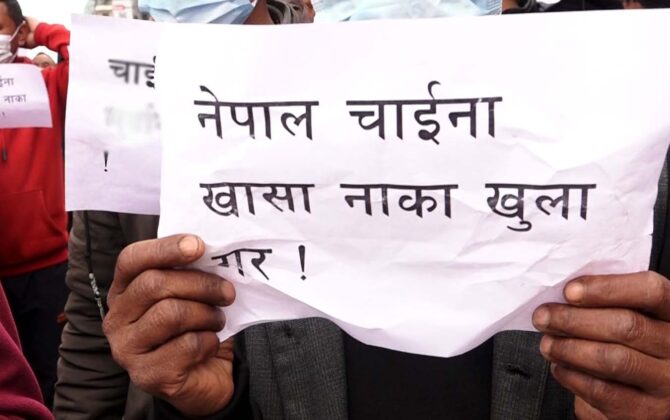 नेपाल चाईना
खासा नाका खुला
गर !
चाई
!
ईना
नाका
!